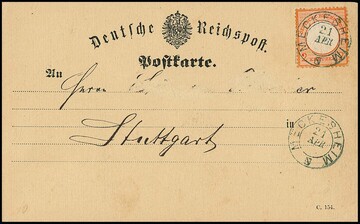 Deutsche Reichspost.
Postkarte.
MECKESHEIM
21
APR
An
Herrn
in
Stuttgart
MECKESHEIM
21
APR
C. 154.